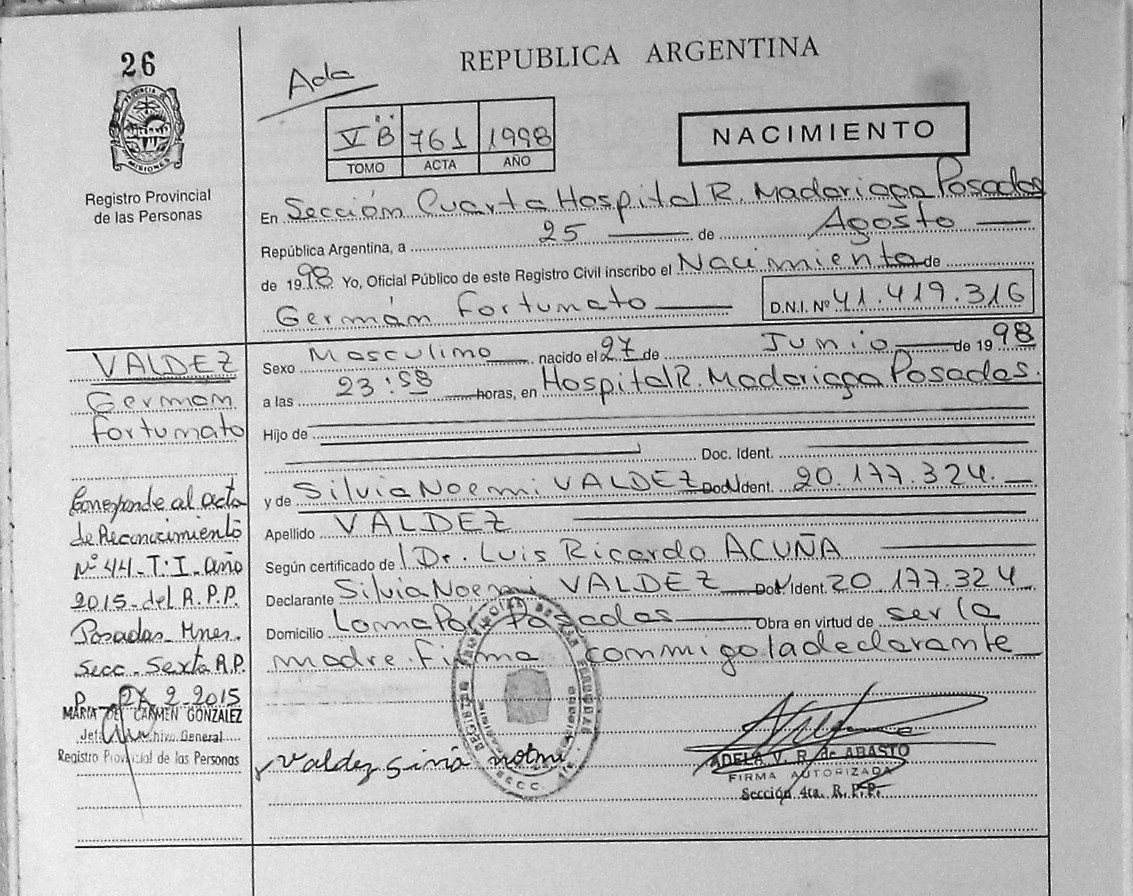 26
REPUBLICA ARGENTINA
Ada
V B 761 1998
TOMO ACTA AÑO
NACIMIENTO
PROVINCIA DE MISIONES
Registro Provincial
de las Personas
En Sección Cuarta Hospital R. Madariaga Posadas
República Argentina, a 25 de Agosto
de 1998 Yo, Oficial Público de este Registro Civil inscribo el Nacimiento de
Germán Fortunato D.N.I. Nº 41.419.316
VALDEZ
Germán
Fortunato
Sexo Masculino nacido el 27 de Junio de 1998
a las 23:58 horas, en Hospital R. Madariaga Posadas.
Hijo de
Doc. Ident.
y de Silvia Noemi VALDEZ Doc. Ident. 20.177.324.
Apellido VALDEZ
Según certificado de Dr. Luis Ricardo ACUÑA
Declarante Silvia Noemi VALDEZ Doc. Ident. 20.177.324
Domicilio Loma Poí Posadas Obra en virtud de ser la
madre. Firma conmigo la declarante
Corresponde al acta
de Reconocimiento
Nº 44-T:I-año
2015-del R.P.P.
Posadas-Mnes.
Secc.-Sexta A.P.
P 27 2 2015
MARIA DEL CARMEN GONZALEZ
Jefa Archivo General
Registro Provincial de las Personas
Valdez Sivia Noemi
ADELA V. R. de ABASTO
FIRMA AUTORIZADA
Sección 4ta. R. P. P.